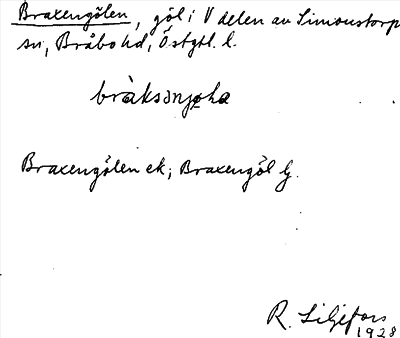 Braxengölen, göl i V delen av Simonstorp
sn, Bråbo hd, Östgtl. l.
Braxengölen ek; Braxengöl
R. Liljefors
1928